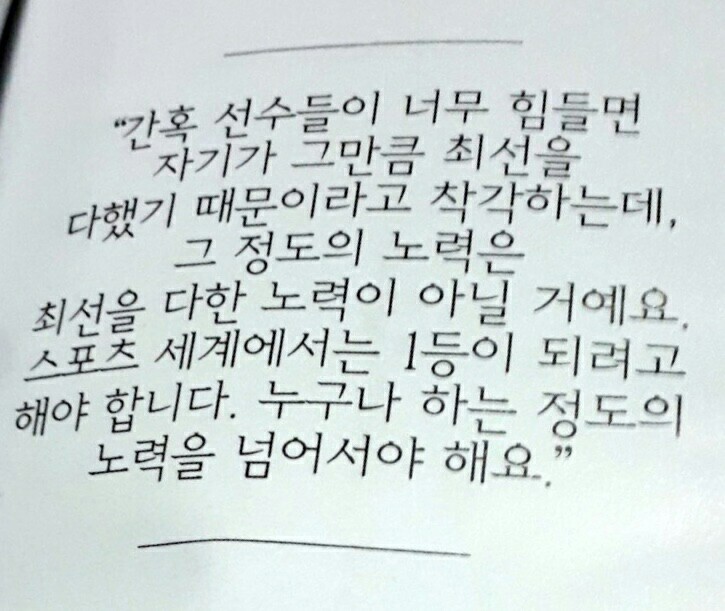 “간혹 선수들이 너무 힘들면
자기가 그만큼 최선을
다했기 때문이라고 착각하는데,
그 정도의 노력은
최선을 다한 노력이 아닐 거예요.
스포츠 세계에서는 1등이 되려고
해야 합니다. 누구나 하는 정도의
노력을 넘어서야 해요.”